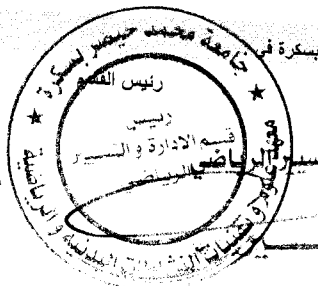 بسكرة في
جامعة محمد خيضر بسكرة
رئيس القسم
رئيس
قسم الإدارة و التسيير
الرياضي
معهد علوم وتقنيات النشاطات البدنية و الرياضية